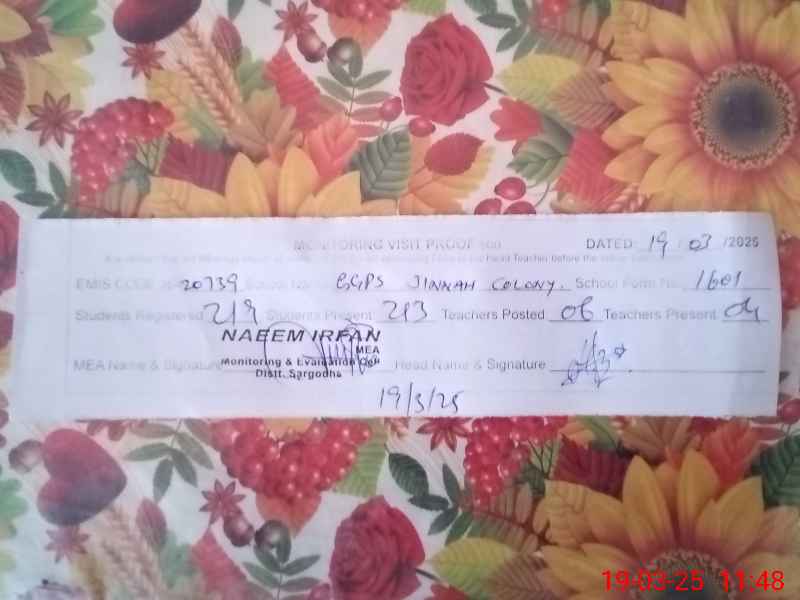 MONITORING VISIT PROOF DATED: 19 / 03 /2025
EMIS CODE 20739 School GGPS JINNAH COLONY. School Form No. 1601
Students Registered 219 Students Present 213 Teachers Posted 06 Teachers Present 04
NAEEM IRFAN
MEA
Monitoring & Evaluation Cell
Distt. Sargodha
MEA Name & Signature Head Name & Signature
19/3/25
19-03-25 11:48